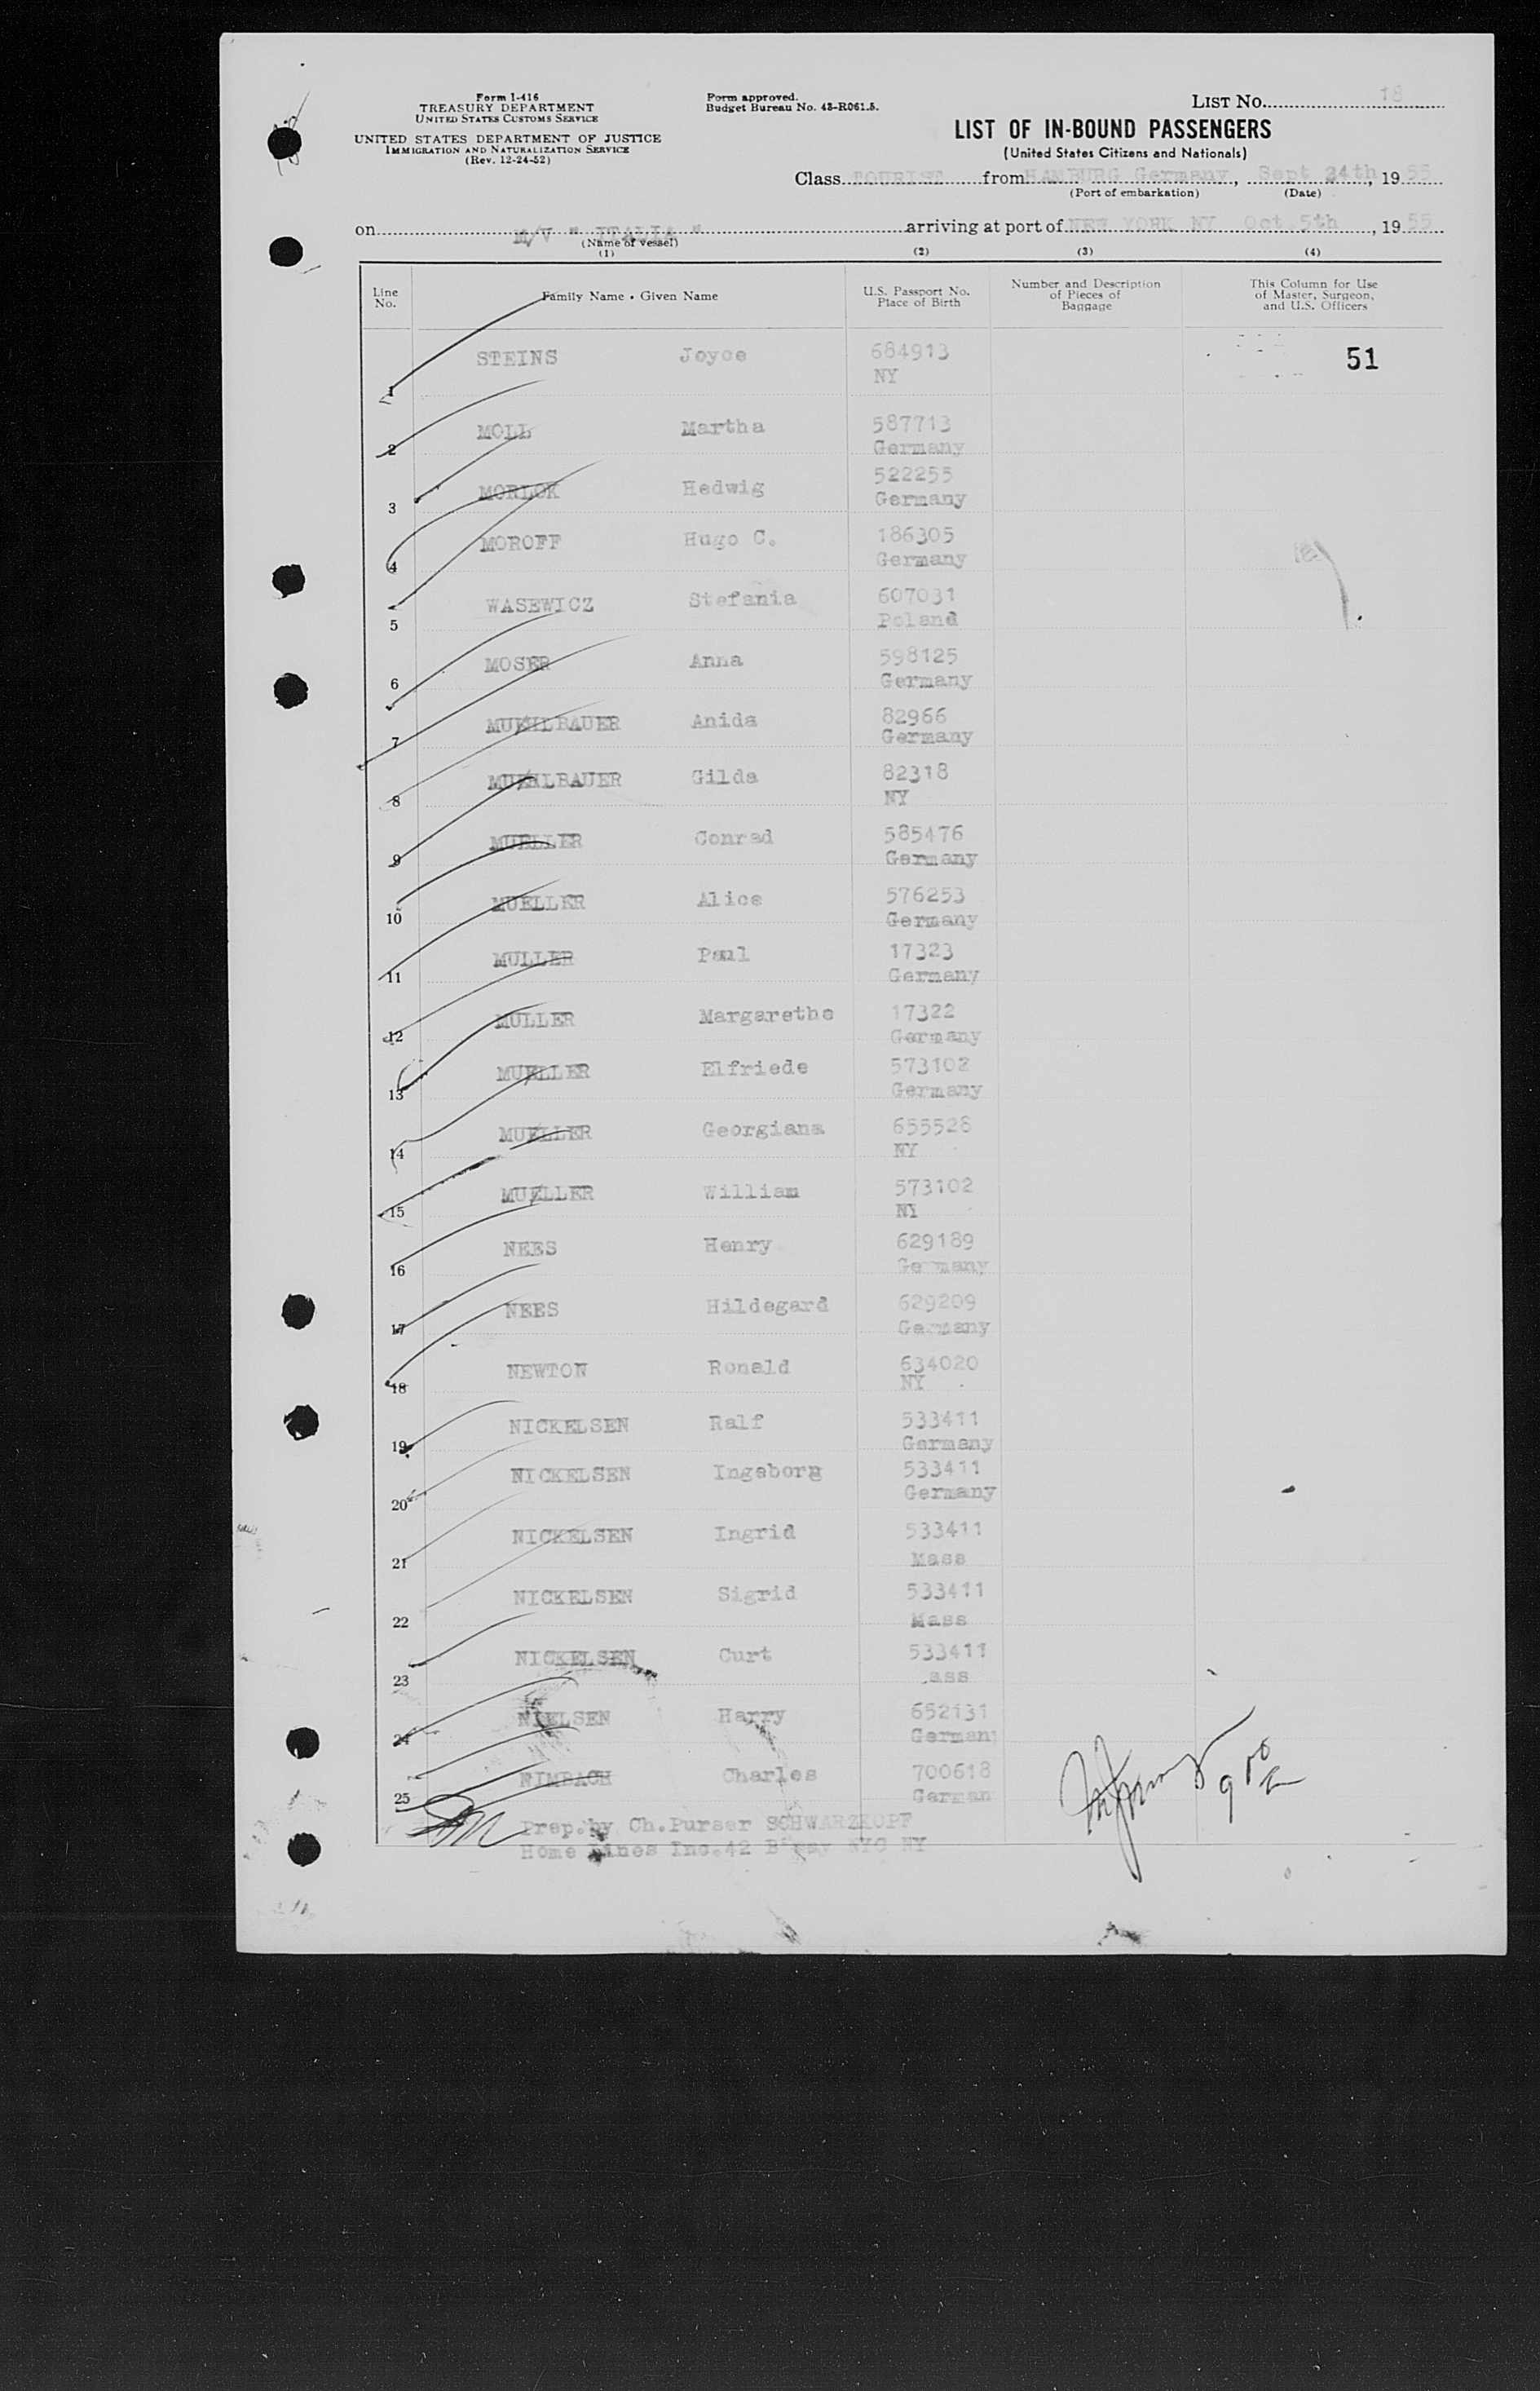 Form I-416
TREASURY DEPARTMENT
UNITED STATES CUSTOMS SERVICE
UNITED STATES DEPARTMENT OF JUSTICE
IMMIGRATION AND NATURALIZATION SERVICE
(Rev. 12-24-52)
Form approved.
Budget Bureau No. 43-R061.5.
LIST No. 18
LIST OF IN-BOUND PASSENGERS
(United States Citizens and Nationals)
Class TOURIST from HAMBURG Germany, Sept 24th, 1955
(Port of embarkation) (Date)
on M/V " ITALIA " arriving at port of NEW YORK NY Oct.5th, 1955
(Name of vessel)
(1) (2) (3) (4)
Line No. Family Name • Given Name U.S. Passport No. Place of Birth Number and Description of Pieces of Baggage This Column for Use of Master, Surgeon, and U.S. Officers
51
1 STEINS Joyce 684913
NY
2 MOLL Martha 587713
Germany
3 MORLOK Hedwig 522255
Germany
4 MOROFF Hugo C. 186305
Germany
5 WASEWICZ Stefania 607031
Poland
6 MOSER Anna 598125
Germany
7 MUEHLBAUER Anida 82966
Germany
8 MUEHLBAUER Gilda 82318
NY
9 MUELLER Conrad 585476
Germany
10 MUELLER Alice 576253
Germany
11 MULLER Paul 17323
Germany
12 MULLER Margarethe 17322
Germany
13 MUELLER Elfriede 573102
Germany
14 MUELLER Georgiana 655528
NY
15 MUELLER William 573102
NY
16 NEES Henry 629189
Germany
17 NEES Hildegard 629209
Germany
18 NEWTON Ronald 634020
NY
19 NICKELSEN Ralf 533411
Germany
20 NICKELSEN Ingeborg 533411
Germany
21 NICKELSEN Ingrid 533411
Mass
22 NICKELSEN Sigrid 533411
Mass
23 NICKELSEN Curt 533411
ass
24 NIELSEN Harry 652131
German
25 NIMBACH Charles 700618
German
Prep.by Ch.Purser SCHWARZKOPF
Home Lines Inc.42 B'way NYC NY